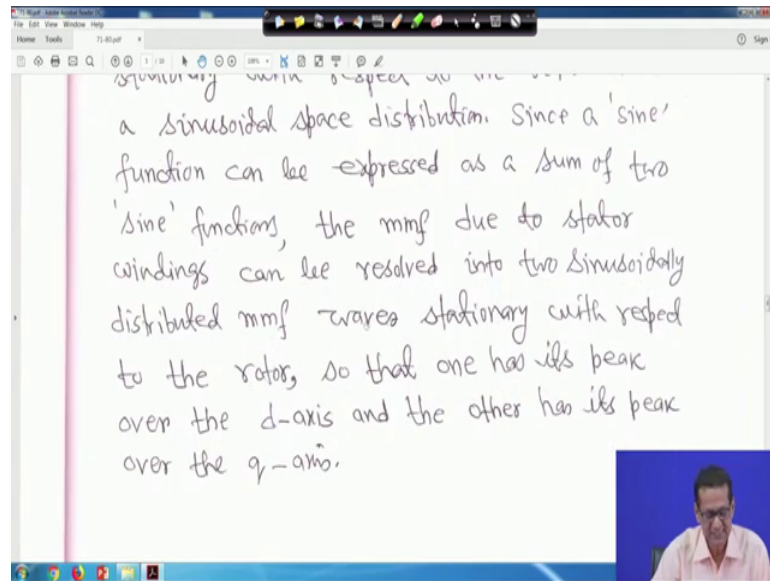 71-80.pdf - Adobe Acrobat Reader DC
File Edit View Window Help
Home Tools 71-80.pdf × Sign
with respect to the
a sinusoidal space distribution. Since a 'sine'
function can be expressed as a sum of two
'sine' functions, the mmf due to stator
windings can be resolved into two sinusoidally
distributed mmf waves stationary with respect
to the rotor, so that one has its peak
over the d-axis and the other has its peak
over the q-axis.